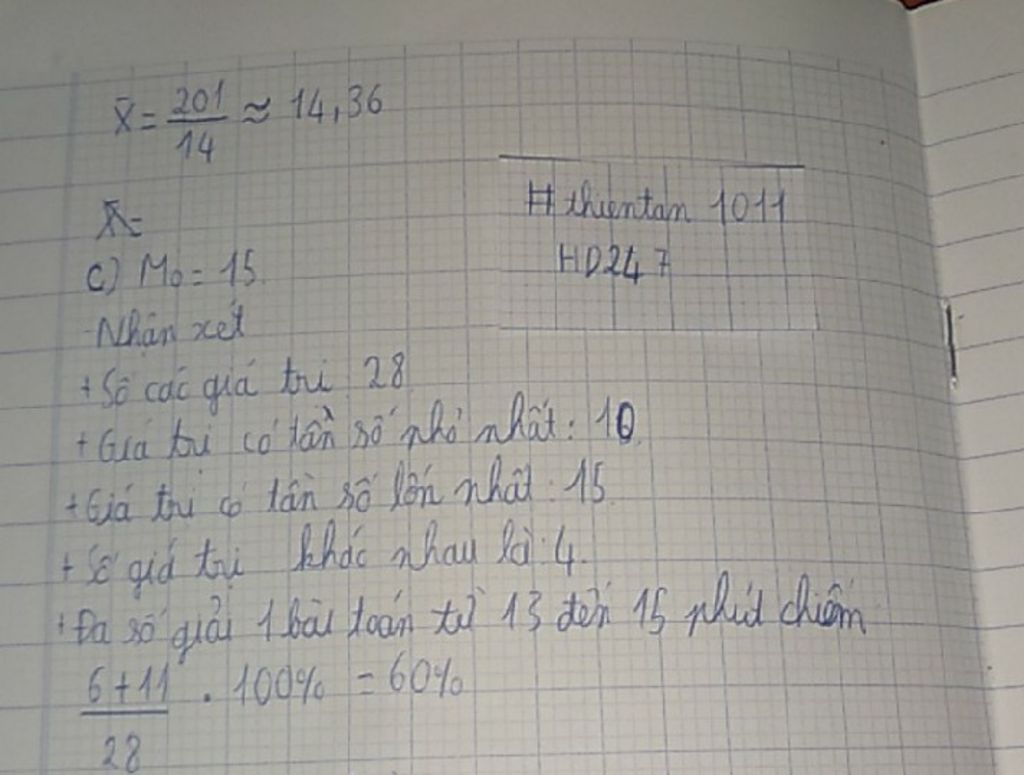 X̄ = 201/14 ≈ 14,36
# thientam 1011
HD247
X̄=
c) Mo = 15
-Nhận xét
+ Số các giá trị 28
+ Giá trị có tần số nhỏ nhất: 10
+ Giá trị có tần số lớn nhất: 15
+ Số giá trị khác nhau là: 4.
+ Đa số giải 1 bài toán từ 13 đến 15 phút chiếm
6+11/28 . 100% = 60%